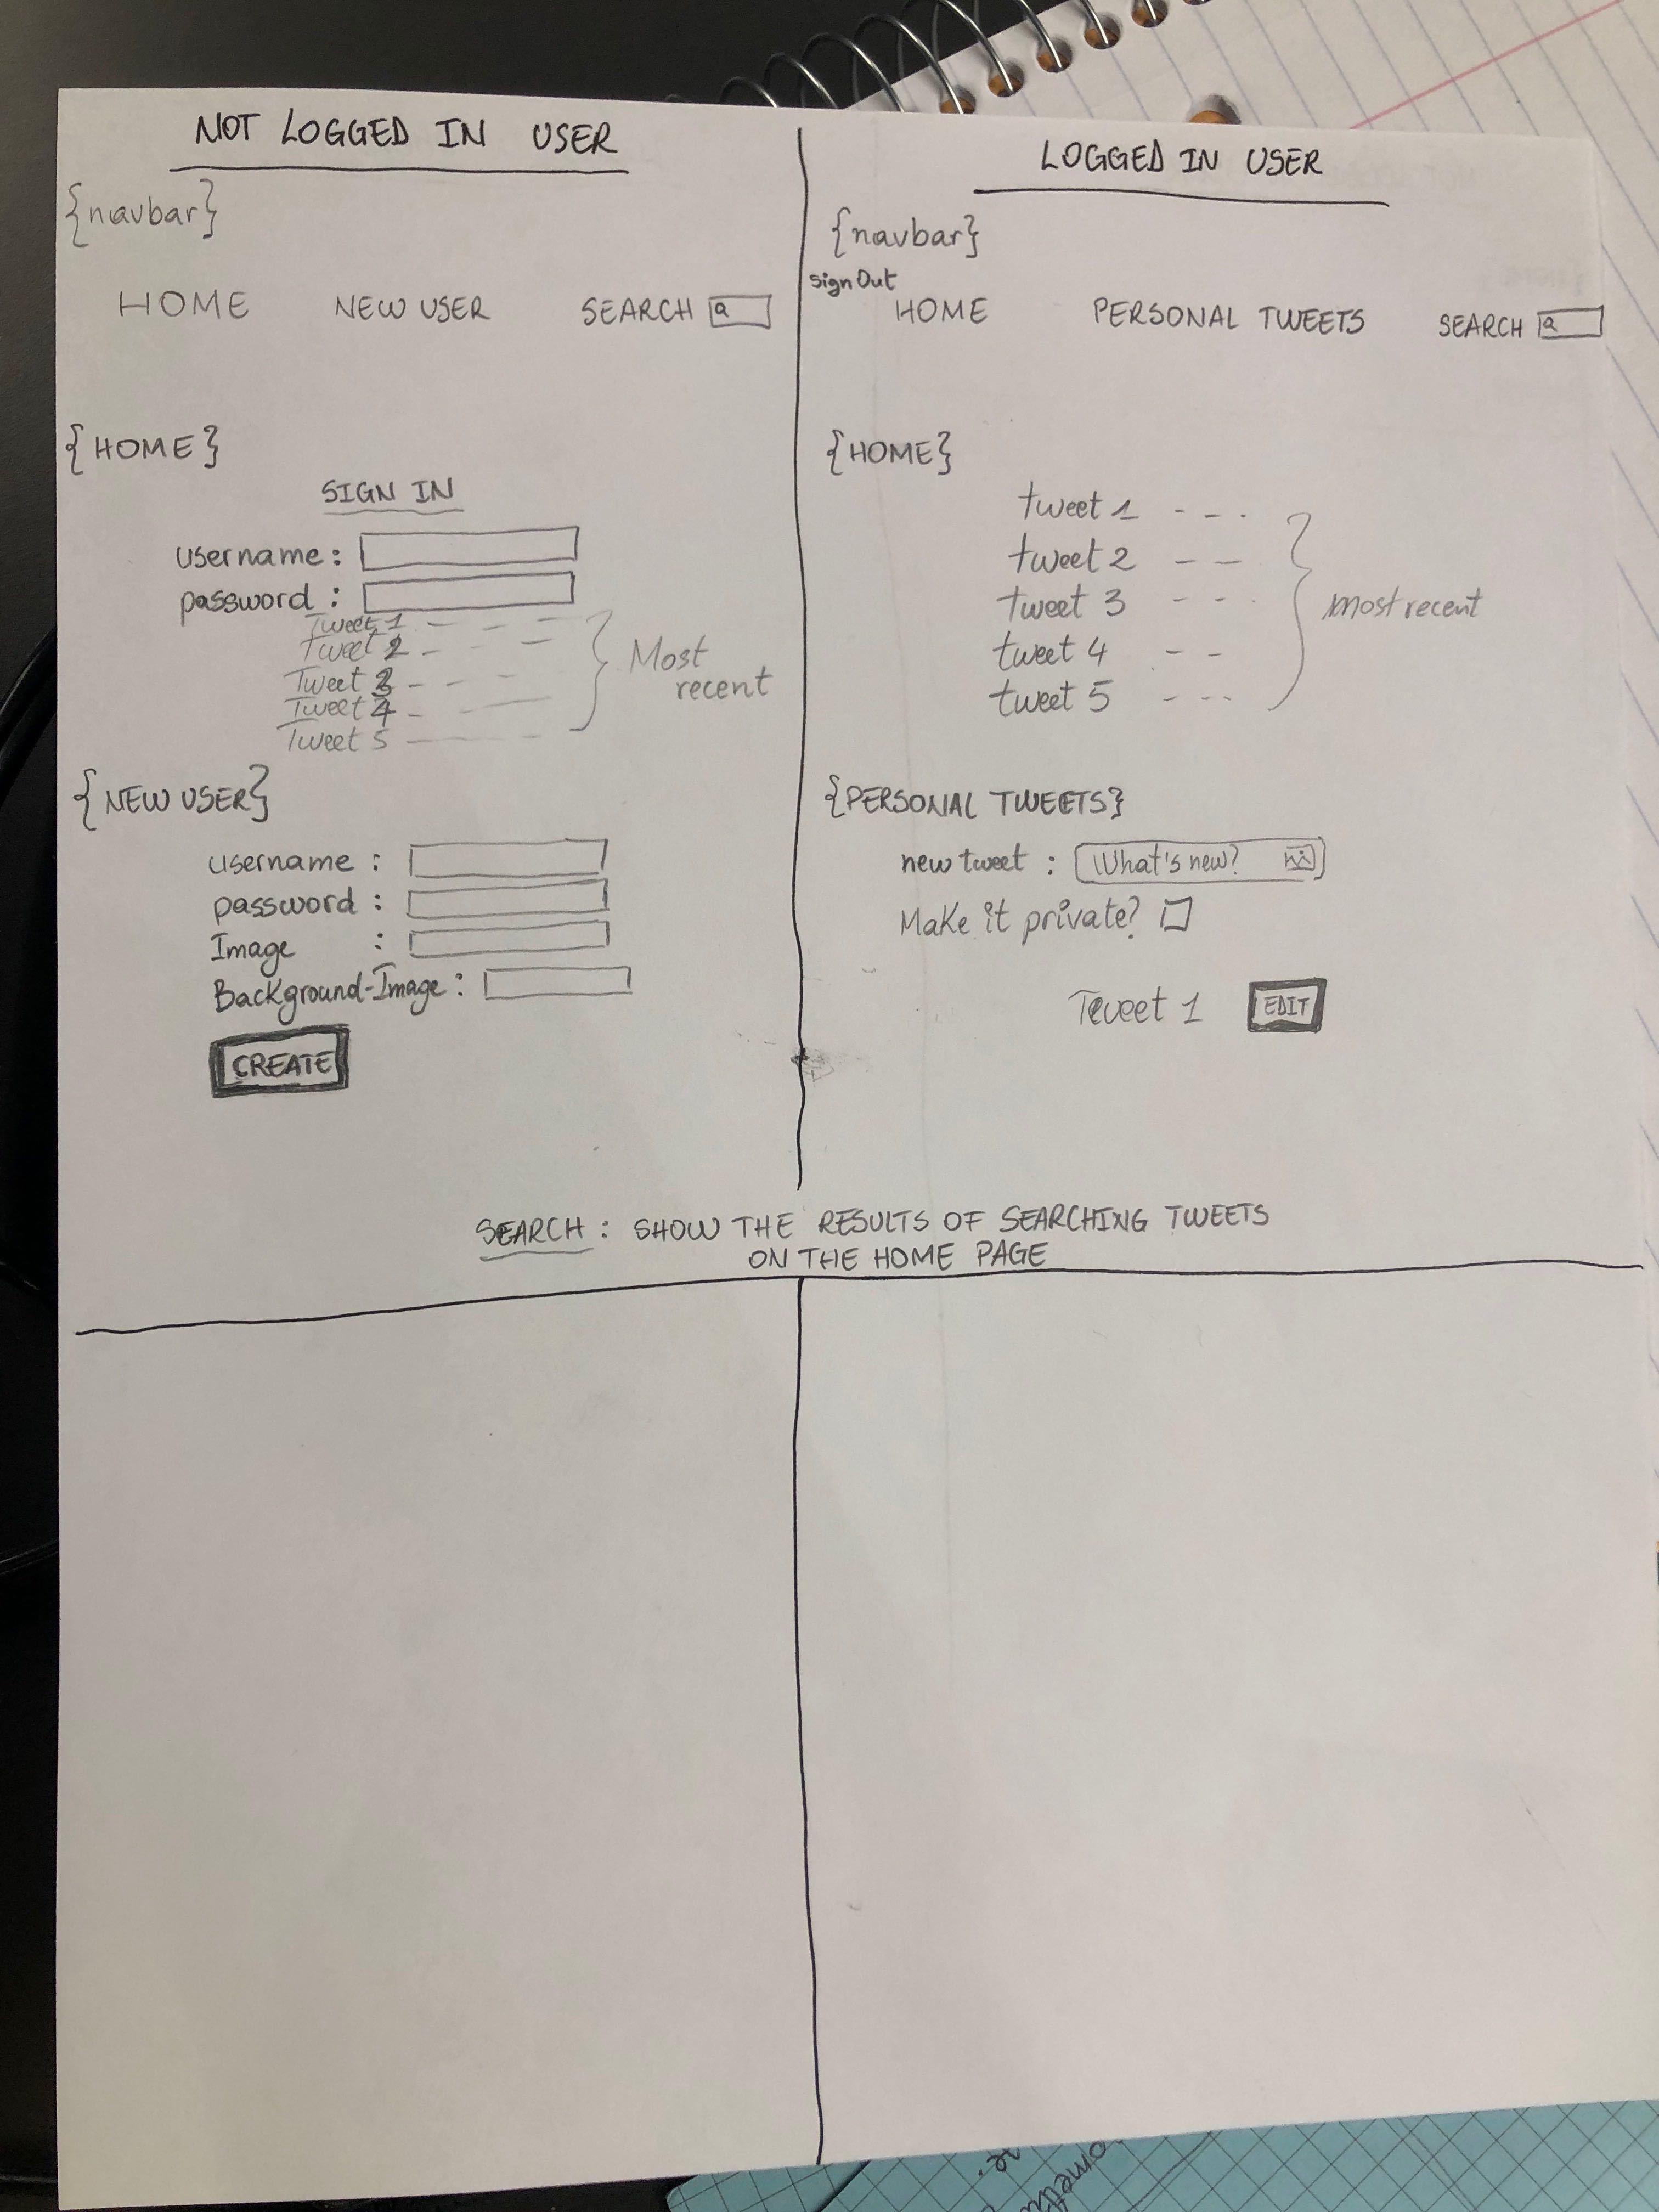 NOT LOGGED IN USER
{navbar}
HOME NEW USER SEARCH
{HOME}
SIGN IN
username :
password :
Tweet 1
Tweet 2
Tweet 3
Tweet 4
Tweet 5
Most
recent
{NEW USER}
username :
password :
Image :
Background-Image :
CREATE
LOGGED IN USER
{navbar}
Sign Out
HOME PERSONAL TWEETS SEARCH
{HOME}
tweet 1
tweet 2
tweet 3
tweet 4
tweet 5
most recent
{PERSONAL TWEETS}
new tweet : What's new?
Make it private?
Tweet 1 EDIT
SEARCH : SHOW THE RESULTS OF SEARCHING TWEETS
ON THE HOME PAGE